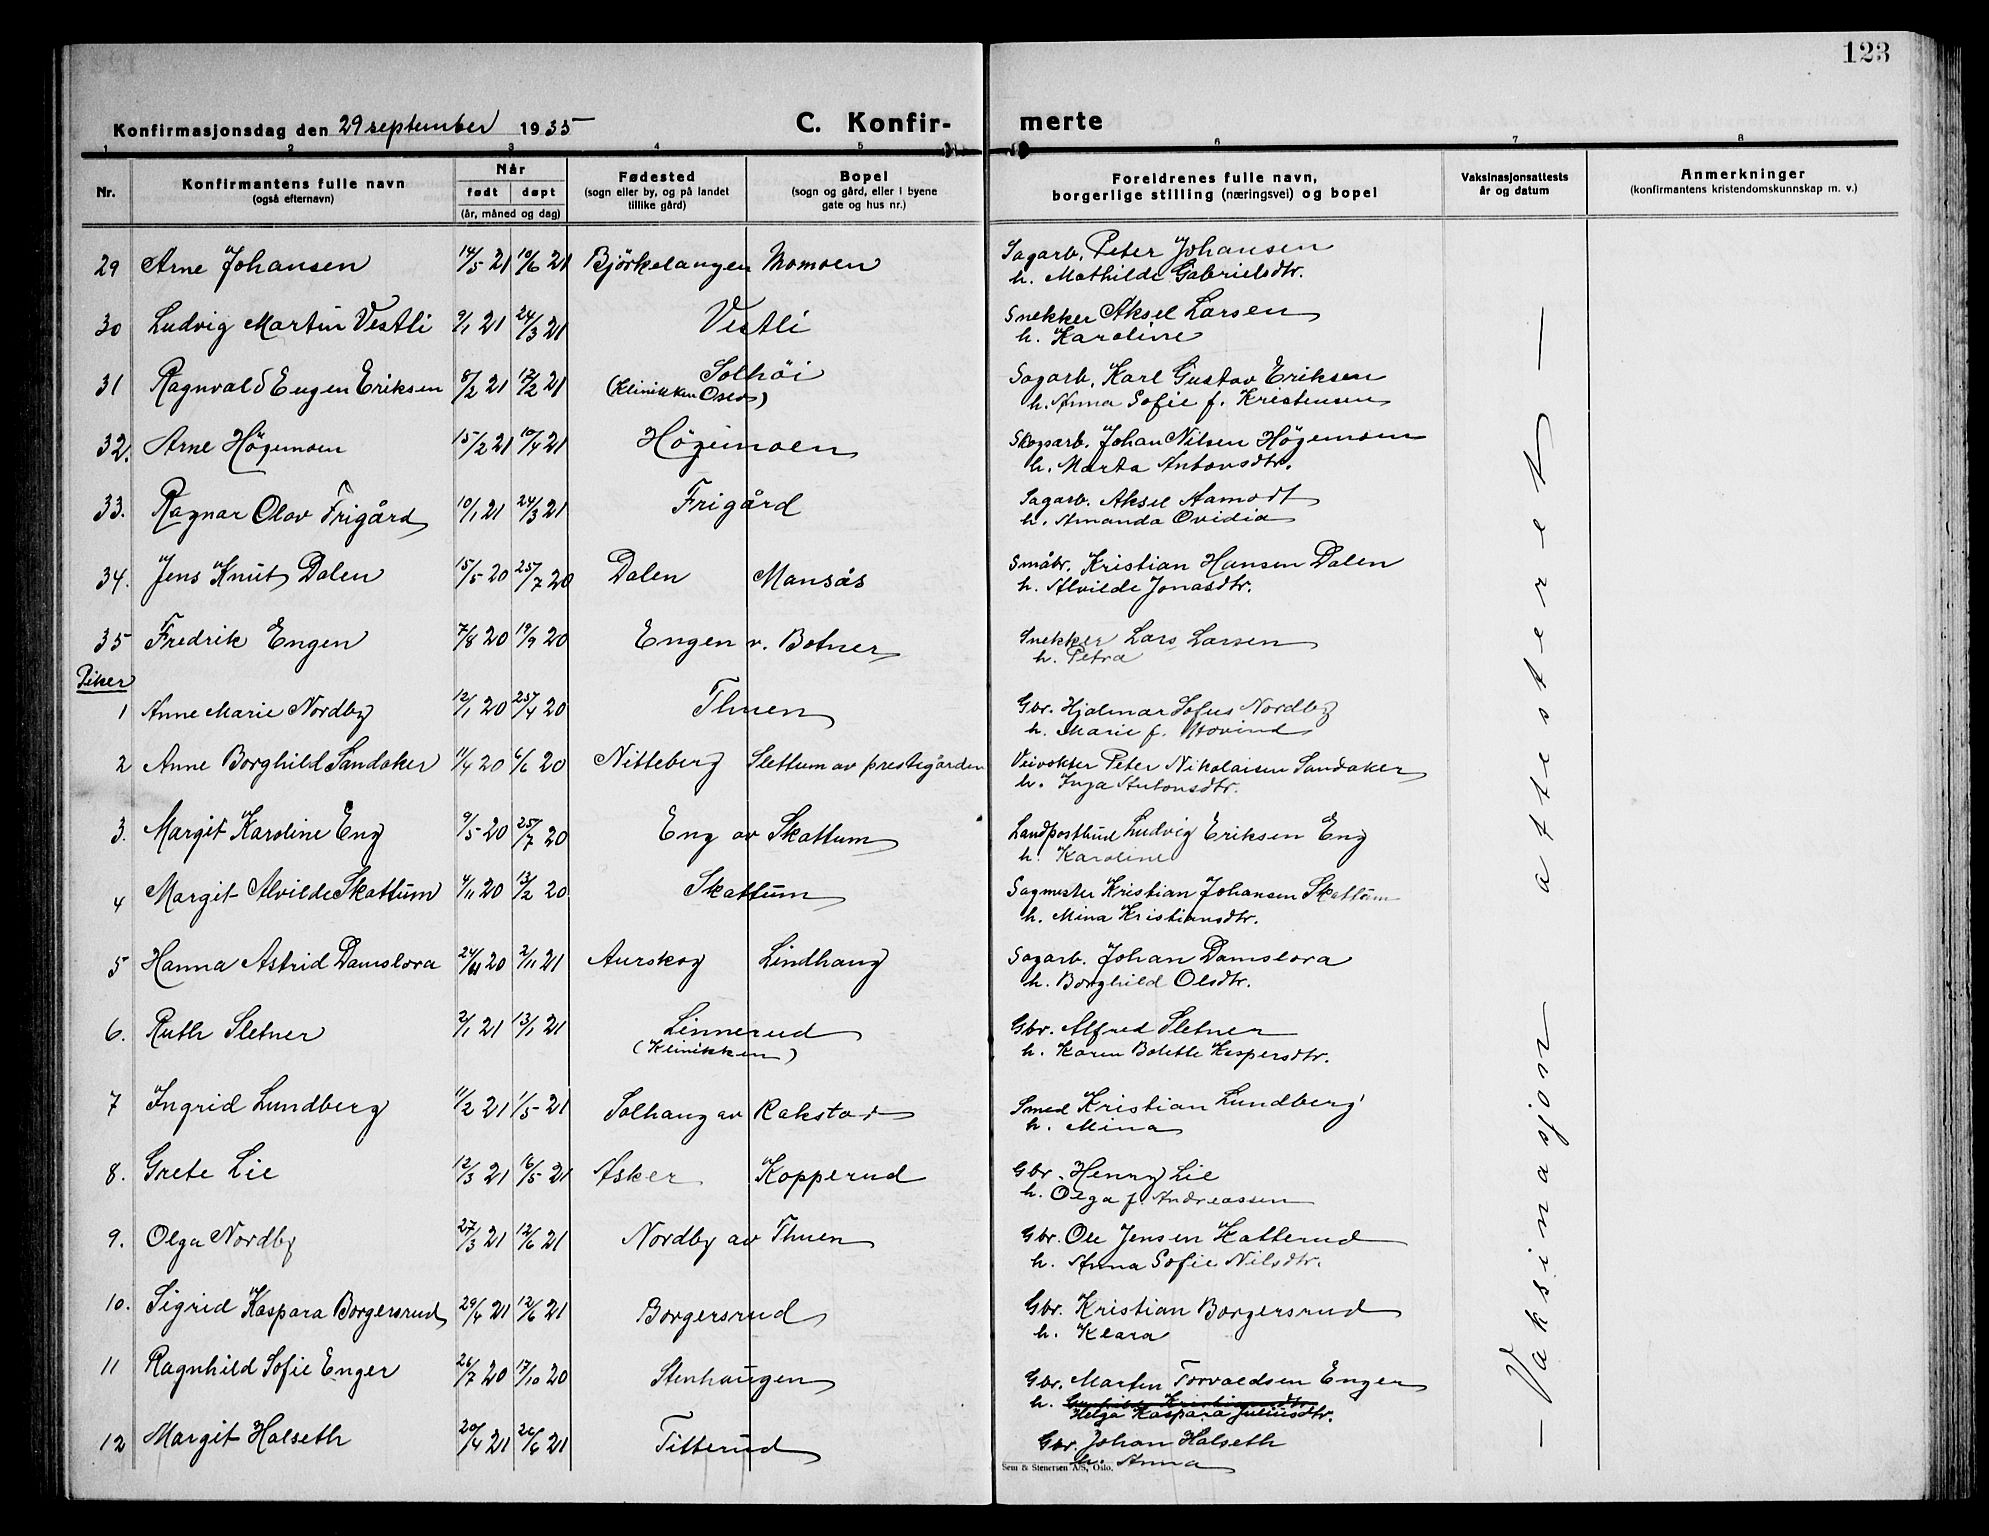 123
Konfirmasjonsdag den 29 september 1935
C. Konfir- merte
1 2 3 4 5 6 7 8
Nr. Konfirmantens fulle navn (også efternavn) Når født døpt (år, måned og dag) Fødested (sogn eller by, og på landet tillike gård) Bopel (sogn og gård, eller i byene gate og hus nr.) Foreldrenes fulle navn, borgerlige stilling (næringsvei) og bopel Vaksinasjonsattests år og datum Anmerkninger (konfirmantens kristendomskunnskap m. v.)
29 Arne Johansen 14/5 21 10/6 21 Björkelangen Momoen Sagarb. Peter Johansen
h. Mathilde Gabrielsdtr.
30 Ludvig Martin Vestli 9/1 21 24/3 21 Vestli Snekker Aksel Larsen
h. Karoline
31 Ragnvald Eugen Eriksen 8/2 21 17/2 21 Solhöi Sagarb. Karl Gustav Eriksen
(Klinikken Oslo) h. Anna Sofie f. Kristensen
32. Arne Högemoen 15/2 21 10/4 21 Högemoen Skogsarb. Johan Nilsen Högemoen
h. Marta Antonsdtr.
33. Ragnar Olav Frigård 10/1 21 24/3 21 Frigård Sagarb. Aksel Aamodt
h. Amanda Ovidia
34. Jens Knut Dalen 15/5 20 25/7 20 Dalen Mansås Småbr. Kristian Hansen Dalen
h. Alvilde Jonasdtr.
35 Fredrik Engen 7/8 20 19/9 20 Engen v. Botner Snekker Lars Larsen
h. Petra
Piker
1 Anne Marie Nordby 12/1 20 25/4 20 Thuen Gbr. Hjalmar Sofus Nordby
h. Marie f. Hovind
2 Anne Borghild Sandaker 11/4 20 6/6 20 Nitteberg Slettum av prestegården Veivokter Peter Nikolaisen Sandaker
h. Inga Antonsdtr.
3. Margit Karoline Eng 9/5 20 25/7 20 Eng av Skattum Landpostbud Ludvig Eriksen Eng
h. Karoline
4 Margit Alvilde Skattum 4/11 20 13/2 20 Skattum Sagmester Kristian Johansen Skattum
h. Mina Kristiansdtr.
5 Hanna Astrid Damslora 24/11 20 2/11 21 Aurskog Lindhaug Sagarb. Johan Damslora
h. Borghild Olsdtr.
6. Ruth Sletner 2/1 21 13/1 21 Linnerud Gbr. Alfred Sletner
(Klinikken) h. Karen Bolette Kaspersdtr.
7 Ingrid Lundberg 11/2 21 1/5 21 Solhaug av Rakstad Smed Kristian Lundberg
h. Mina
8. Grete Lie 12/3 21 16/5 21 Asker Kopperud Gbr. Henny Lie
h. Olga f. Andreassen
9. Olga Nordby 27/3 21 12/6 21 Nordby av Thuen Gbr. Ole Jensen Hatterud
h. Anna Sofie Nilsdtr.
10. Sigrid Kaspara Borgersrud 29/4 21 12/6 21 Borgersrud Gbr. Kristian Borgersrud
h. Klara
11 Ragnhild Sofie Enger 26/7 20 17/10 20 Stenhaugen Gbr. Martin Torvaldsen Enger
h. Helga Kaspara Juliusdtr.
12 Margit Halseth 20/4 21 26/6 21 Titterud Gbr. Johan Halseth
h. Anna
— Vaksinasjon attestert —
Sem & Stenersen A/S, Oslo.